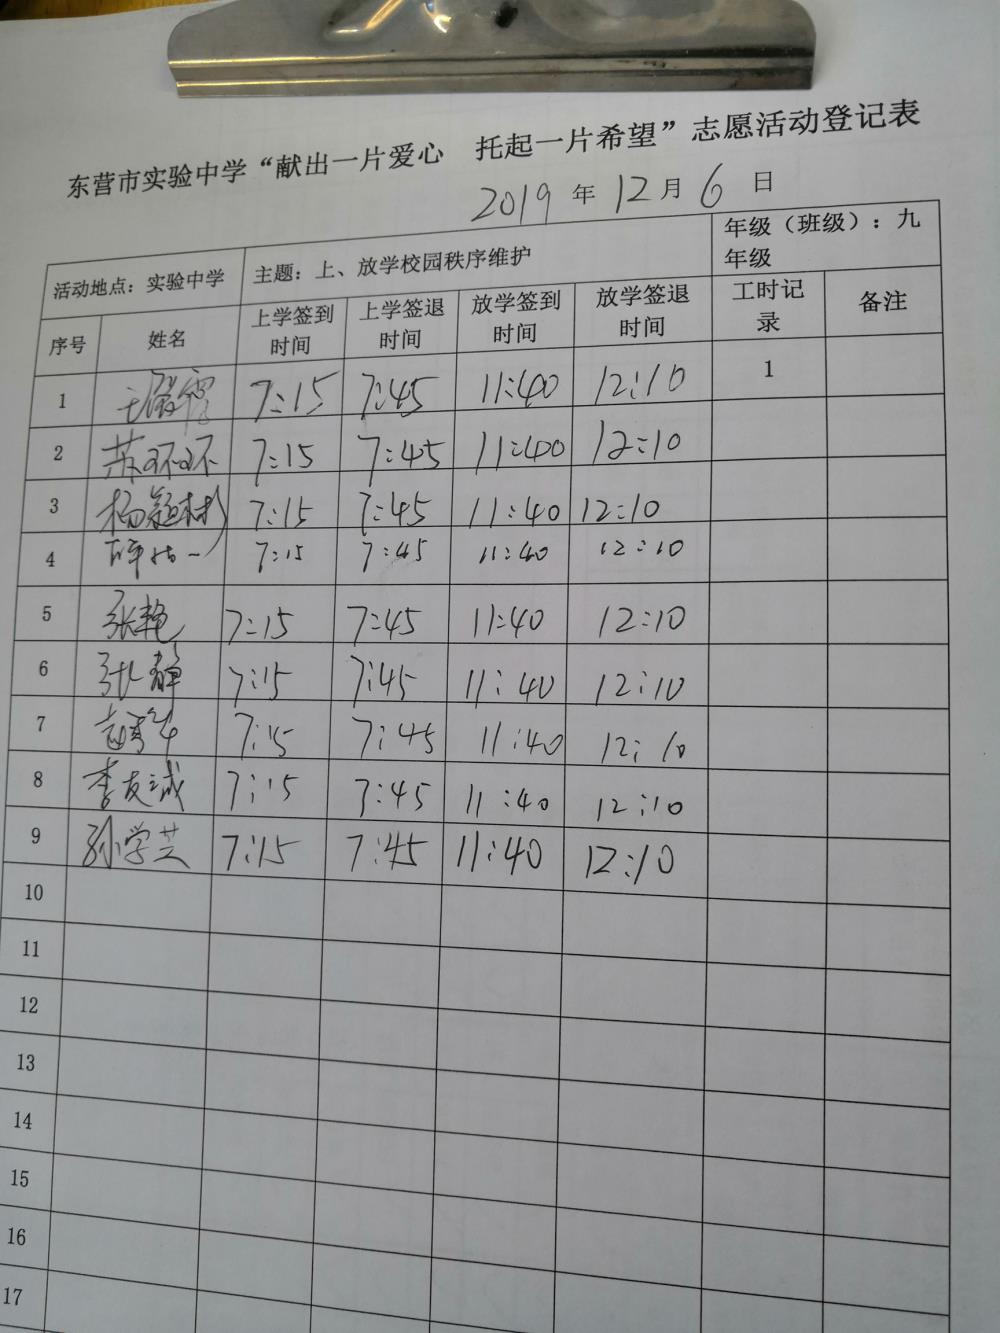 东营市实验中学“献出一片爱心 托起一片希望”志愿活动登记表
2019 年 12 月 6 日
活动地点：实验中学 主题：上、放学校园秩序维护 年级（班级）：九年级
序号 姓名 上学签到时间 上学签退时间 放学签到时间 放学签退时间 工时记录 备注
1 7:15 7:45 11:40 12:10 1
2 苏环环 7:15 7:45 11:40 12:10
3 杨颖彬 7:15 7:45 11:40 12:10
4 7:15 7:45 11:40 12:10
5 张艳 7:15 7:45 11:40 12:10
6 张静 7:15 7:45 11:40 12:10
7 7:15 7:45 11:40 12:10
8 李友诚 7:15 7:45 11:40 12:10
9 孙学芸 7:15 7:45 11:40 12:10
10
11
12
13
14
15
16
17